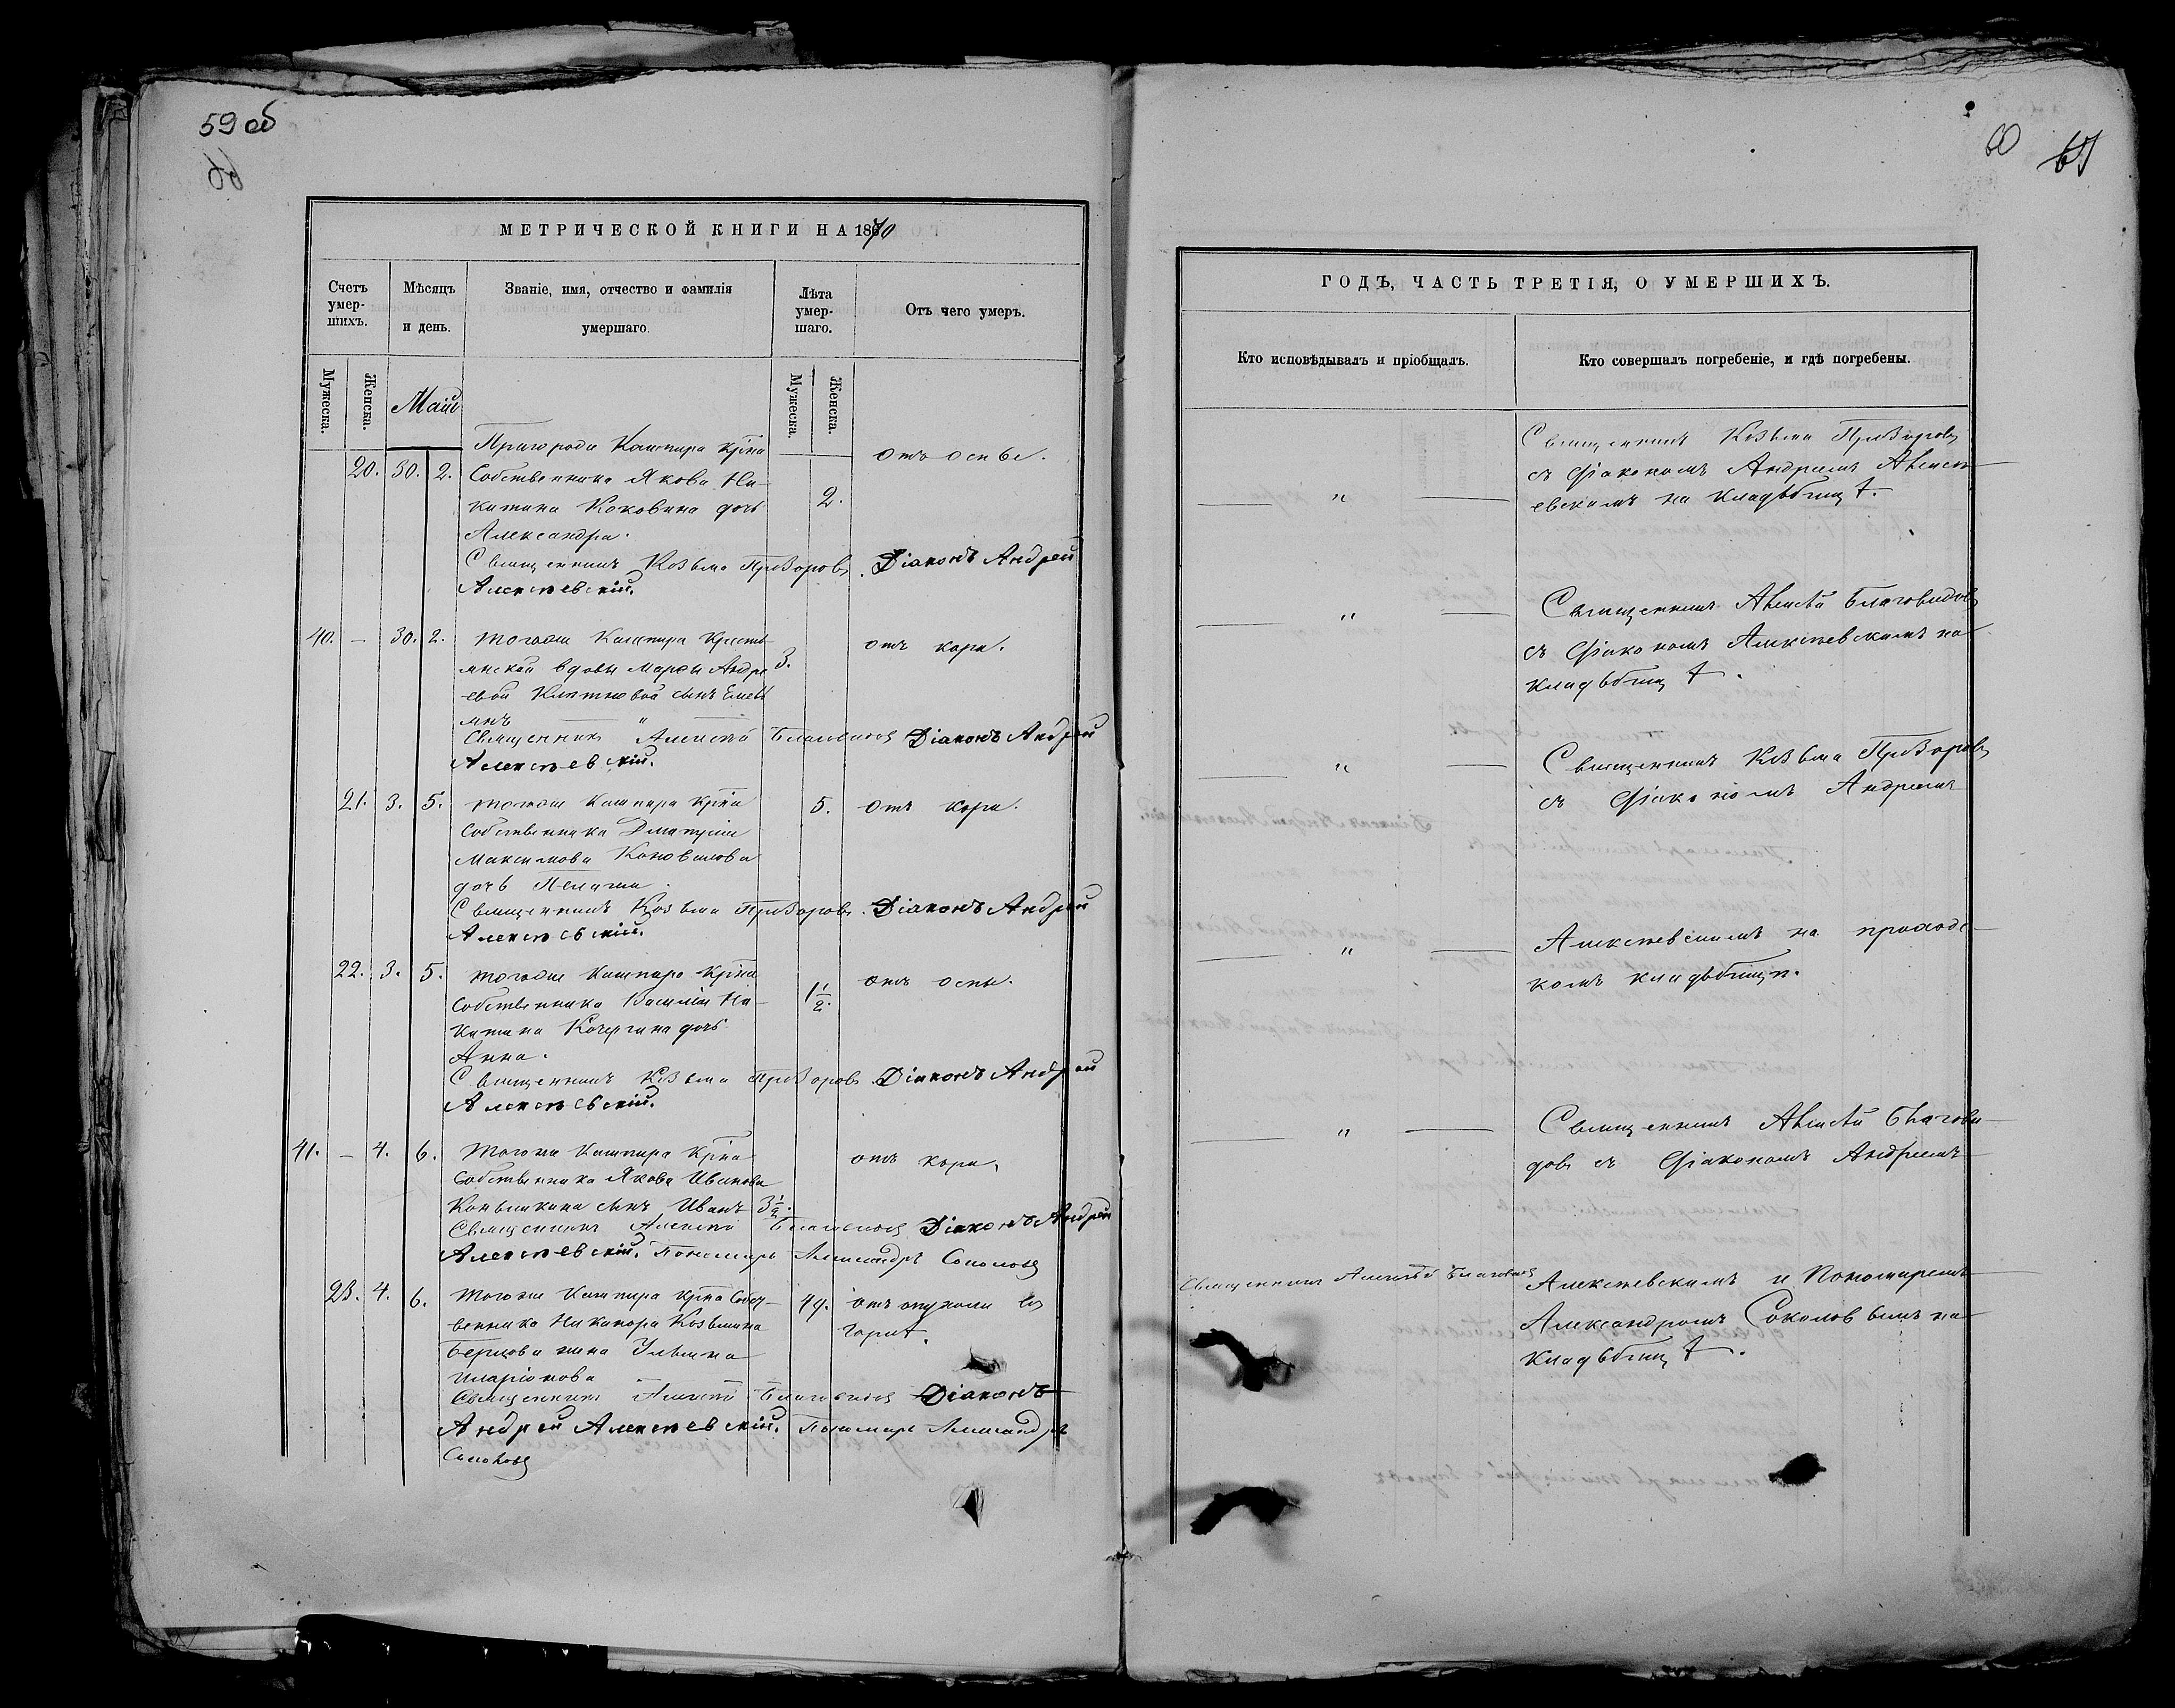 59 об
60
61
МЕТРИЧЕСКОЙ КНИГИ НА 1870
Счетъ умер-шихъ.
Мѣсяцъ и день.
Званіе, имя, отчество и фамилія умершаго.
Лѣта умер-шаго.
Отъ чего умеръ.
Мужеска.
Женска.
Маій
Мужеска.
Женска.
20. 30. 2.
Пригорода Кашпира крѣна
Собственника Якова Ни-
китина Коковина дочь
Александра.
2.
отъ оспы.
Священникъ Козьма Прозоровъ. Діаконъ Андрей
Алексѣевскій.
40. – 30. 2.
Тогоже Кашпира Кресть-
янской вдовы Марѳы Андре
евой сынъ Емель
янъ
3.
отъ кори.
Священникъ Алексѣй Благовидовъ Діаконъ Андрей
Алексѣевскій.
21. 3. 5.
Тогоже Кашпира крѣна
Собственника Димитрія
Максимова Коновалова
дочь Пелагія.
5.
отъ кори.
Священникъ Козьма Прозоровъ. Діаконъ Андрей
Алексѣевскій.
22. 3. 5.
Тогоже Кашпира крѣна
Собственника Василія Ни-
китина Кочергина дочь
Анна.
1 1/2.
отъ оспы.
Священникъ Козьма Прозоровъ. Діаконъ Андрей
Алексѣевскій.
41. – 4. 6.
Тогоже Кашпира крѣна
Собственника Якова Иванова
Конышкина сынъ Иванъ
3 1/2.
отъ кори.
Священникъ Алексѣй Благовидовъ Діаконъ Андрей
Алексѣевскій. Пономарь Александръ Соколовъ
23. 4. 6.
Тогоже Кашпира крѣна Собст-
венника Никанора Козьмина
жена Ульяна
Иларіонова
49.
отъ опухоли въ
горлѣ.
Священникъ Алексѣй Благовидовъ Діаконъ
Андрей Алексѣевскій. Пономарь Александръ
Соколовъ
ГОДЪ, ЧАСТЬ ТРЕТІЯ, О УМЕРШИХЪ.
Кто исповѣдывалъ и пріобщалъ.
Кто совершалъ погребеніе, и гдѣ погребены.
— " —
Священникъ Козьма Прозоровъ
съ Діакономъ Андреемъ Алексѣ-
евскимъ на кладбищѣ.
— " —
Священникъ Алексѣй Благовидовъ
съ Діакономъ Алексѣевскимъ на
кладбищѣ.
— " —
Священникъ Козьма Прозоровъ
съ Діакономъ Андреемъ
— " —
Алексѣевскимъ на приходс-
комъ кладбищѣ.
— " —
Священникъ Алексѣй Благови-
довъ съ Діакономъ Андреемъ
Священникъ Алексѣй Благовидовъ
Алексѣевскимъ и Пономаремъ
Александромъ Соколовымъ на
кладбищѣ.